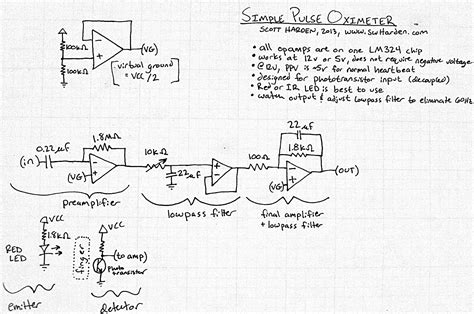 SIMPLE PULSE OXIMETER
SCOTT HARDEN, 2013, www.SWHarden.com
• all opamps are on one LM324 chip
• works at 12v or 5v, does not require negative voltage
• @12v, PPV is ~5v for normal heartbeat
• designed for phototransistor input (decoupled)
• Red or IR LED is best to use
• watch output & adjust lowpass filter to eliminate 60Hz
VCC
100kΩ
100kΩ
(VG)
virtual ground
= VCC/2
(in)
0.22µF
1.8MΩ
(VG)
preamplifier
10kΩ
22µF
lowpass filter
100Ω
22µF
1.8kΩ
(VG)
(OUT)
final amplifier
+ lowpass filter
VCC
1.8kΩ
RED
LED
emitter
finger
VCC
(to amp)
photo
transistor
detector